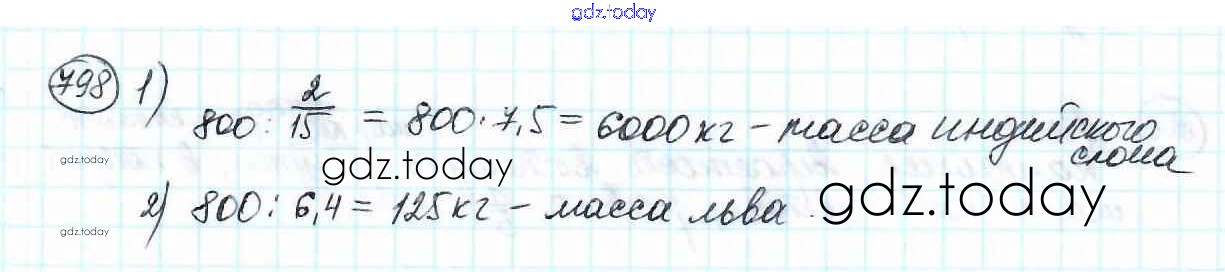 gdz.today
798 1) 800 : 2/15 = 800 · 7,5 = 6000 кг – масса индийского
слона
gdz.today
gdz.today
2) 800 : 6,4 = 125 кг – масса льва
gdz.today
gdz.today